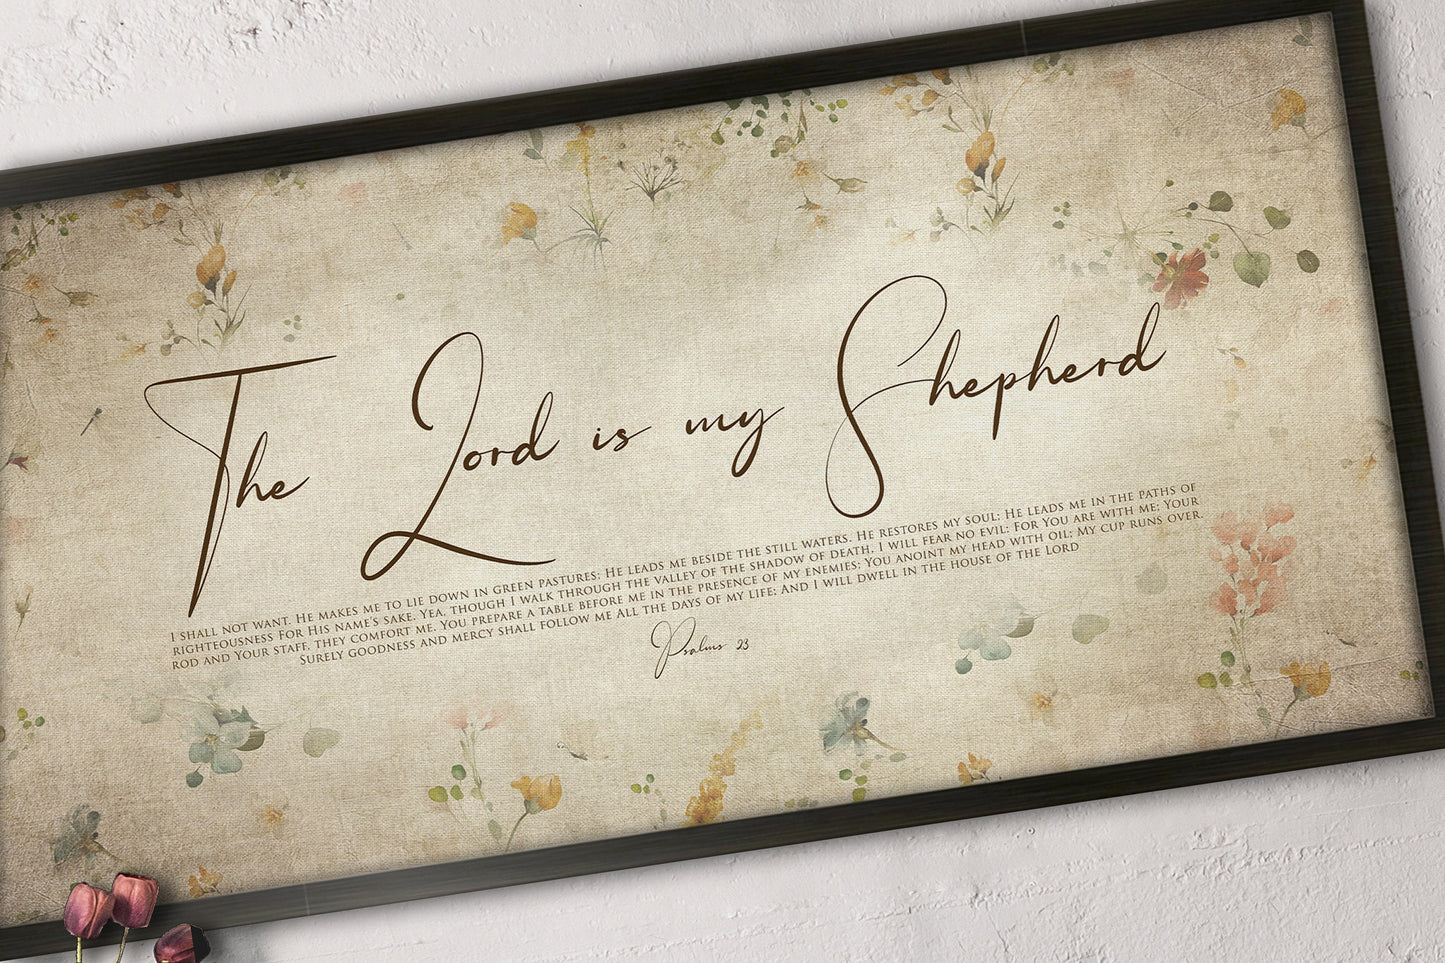 The Lord is my Shepherd
I shall not want. He makes me to lie down in green pastures; He leads me beside the still waters. He restores my soul; He leads me in the paths of
righteousness For His name's sake. Yea, though I walk through the valley of the shadow of death, I will fear no evil; For You are with me; Your
rod and Your staff, they comfort me. You prepare a table before me in the presence of my enemies; You anoint my head with oil; My cup runs over.
Surely goodness and mercy shall follow me All the days of my life; And I will dwell in the house of the Lord
Psalms 23